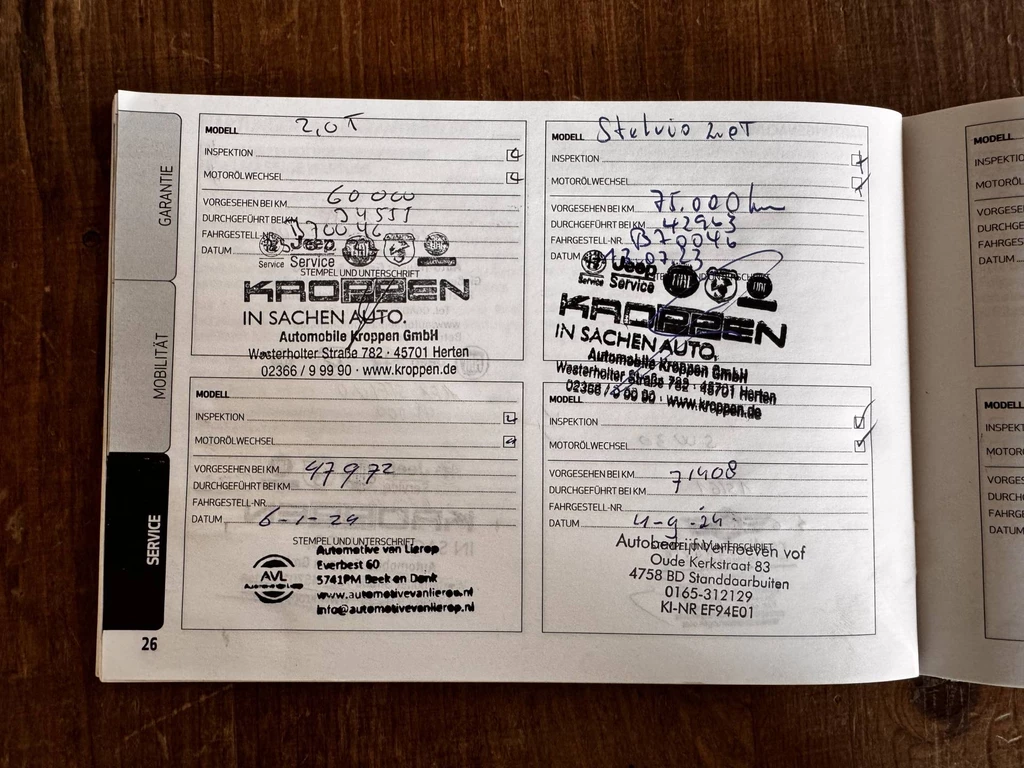 GARANTIE
MOBILITÄT
SERVICE
26
MODELL 2,0 T
INSPEKTION
MOTORÖLWECHSEL
VORGESEHEN BEI KM 60000
DURCHGEFÜHRT BEI KM
FAHRGESTELL-NR. B70046
DATUM
Jeep
Service Service
STEMPEL UND UNTERSCHRIFT
KROPPEN
IN SACHEN AUTO.
Automobile Kroppen GmbH
Westerholter Straße 782 · 45701 Herten
02366 / 9 99 90 · www.kroppen.de
MODELL Stelvio 2.0T
INSPEKTION
MOTORÖLWECHSEL
VORGESEHEN BEI KM 75.000 km
DURCHGEFÜHRT BEI KM 42963
FAHRGESTELL-NR. B70046
DATUM 12.07.23
Jeep
Service Service
KROPPEN
IN SACHEN AUTO.
Automobile Kroppen GmbH
Westerholter Straße 782 · 45701 Herten
02366 / 9 99 90 · www.kroppen.de
MODELL
INSPEKTION
MOTORÖLWECHSEL
VORGESEHEN BEI KM 47972
DURCHGEFÜHRT BEI KM
FAHRGESTELL-NR.
DATUM 6-1-24
STEMPEL UND UNTERSCHRIFT
AVL
Automotive van Lierop
Everbest 60
5741PM Beek en Donk
www.automotivevanlierop.nl
info@automotivevanlierop.nl
MODELL
INSPEKTION
MOTORÖLWECHSEL
VORGESEHEN BEI KM 71408
DURCHGEFÜHRT BEI KM
FAHRGESTELL-NR.
DATUM 4-9-24
Autobedrijf Verhoeven vof
Oude Kerkstraat 83
4758 BD Standdaarbuiten
0165-312129
KI-NR EF94E01
MODELL
INSPEKTIO
MOTORÖL
VORGESE
DURCHGE
FAHRGES
DATUM
MODELL
INSPEKT
MOTORÖ
VORGES
DURCH
FAHRG
DATUM